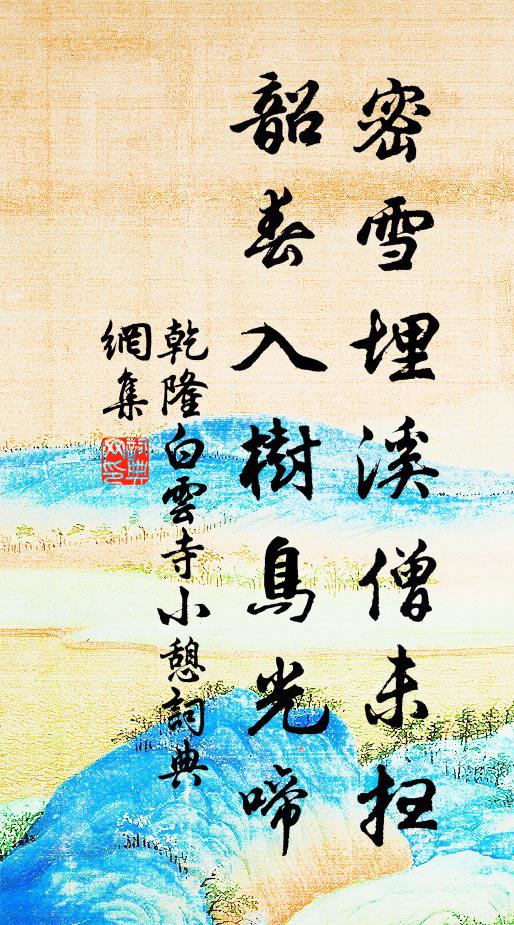 密雪埋溪僧未扫
韶春入樹鳥光啼
乾隆白雲寺小憩詞典
網集